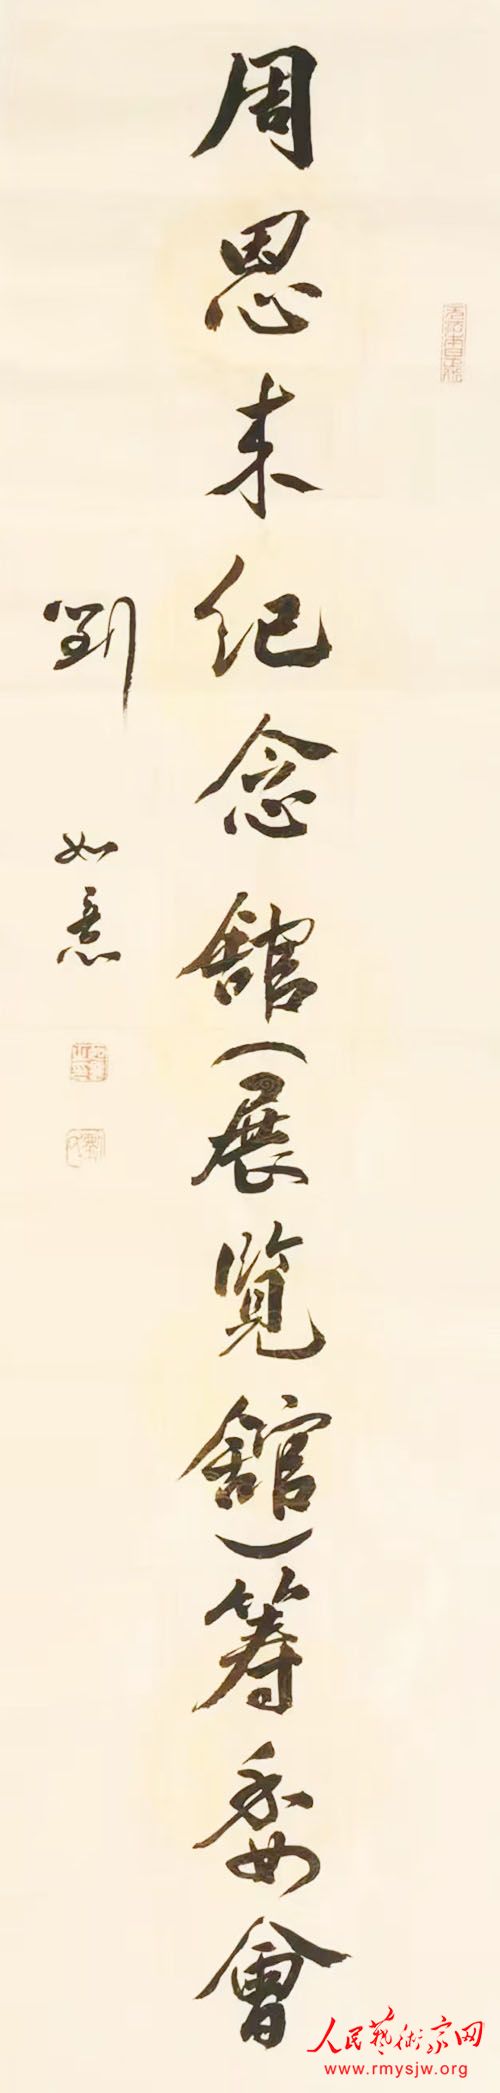 周恩来纪念舘(展览舘)筹委會
劉如意
人民藝術家网
www.rmysjw.org